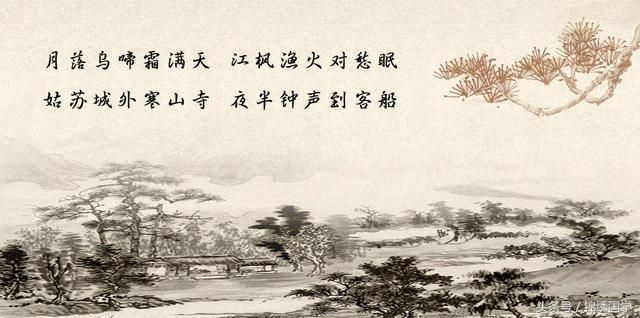 月落乌啼霜满天 江枫渔火对愁眠
姑苏城外寒山寺 夜半钟声到客船
头条号 / 锦绣国学